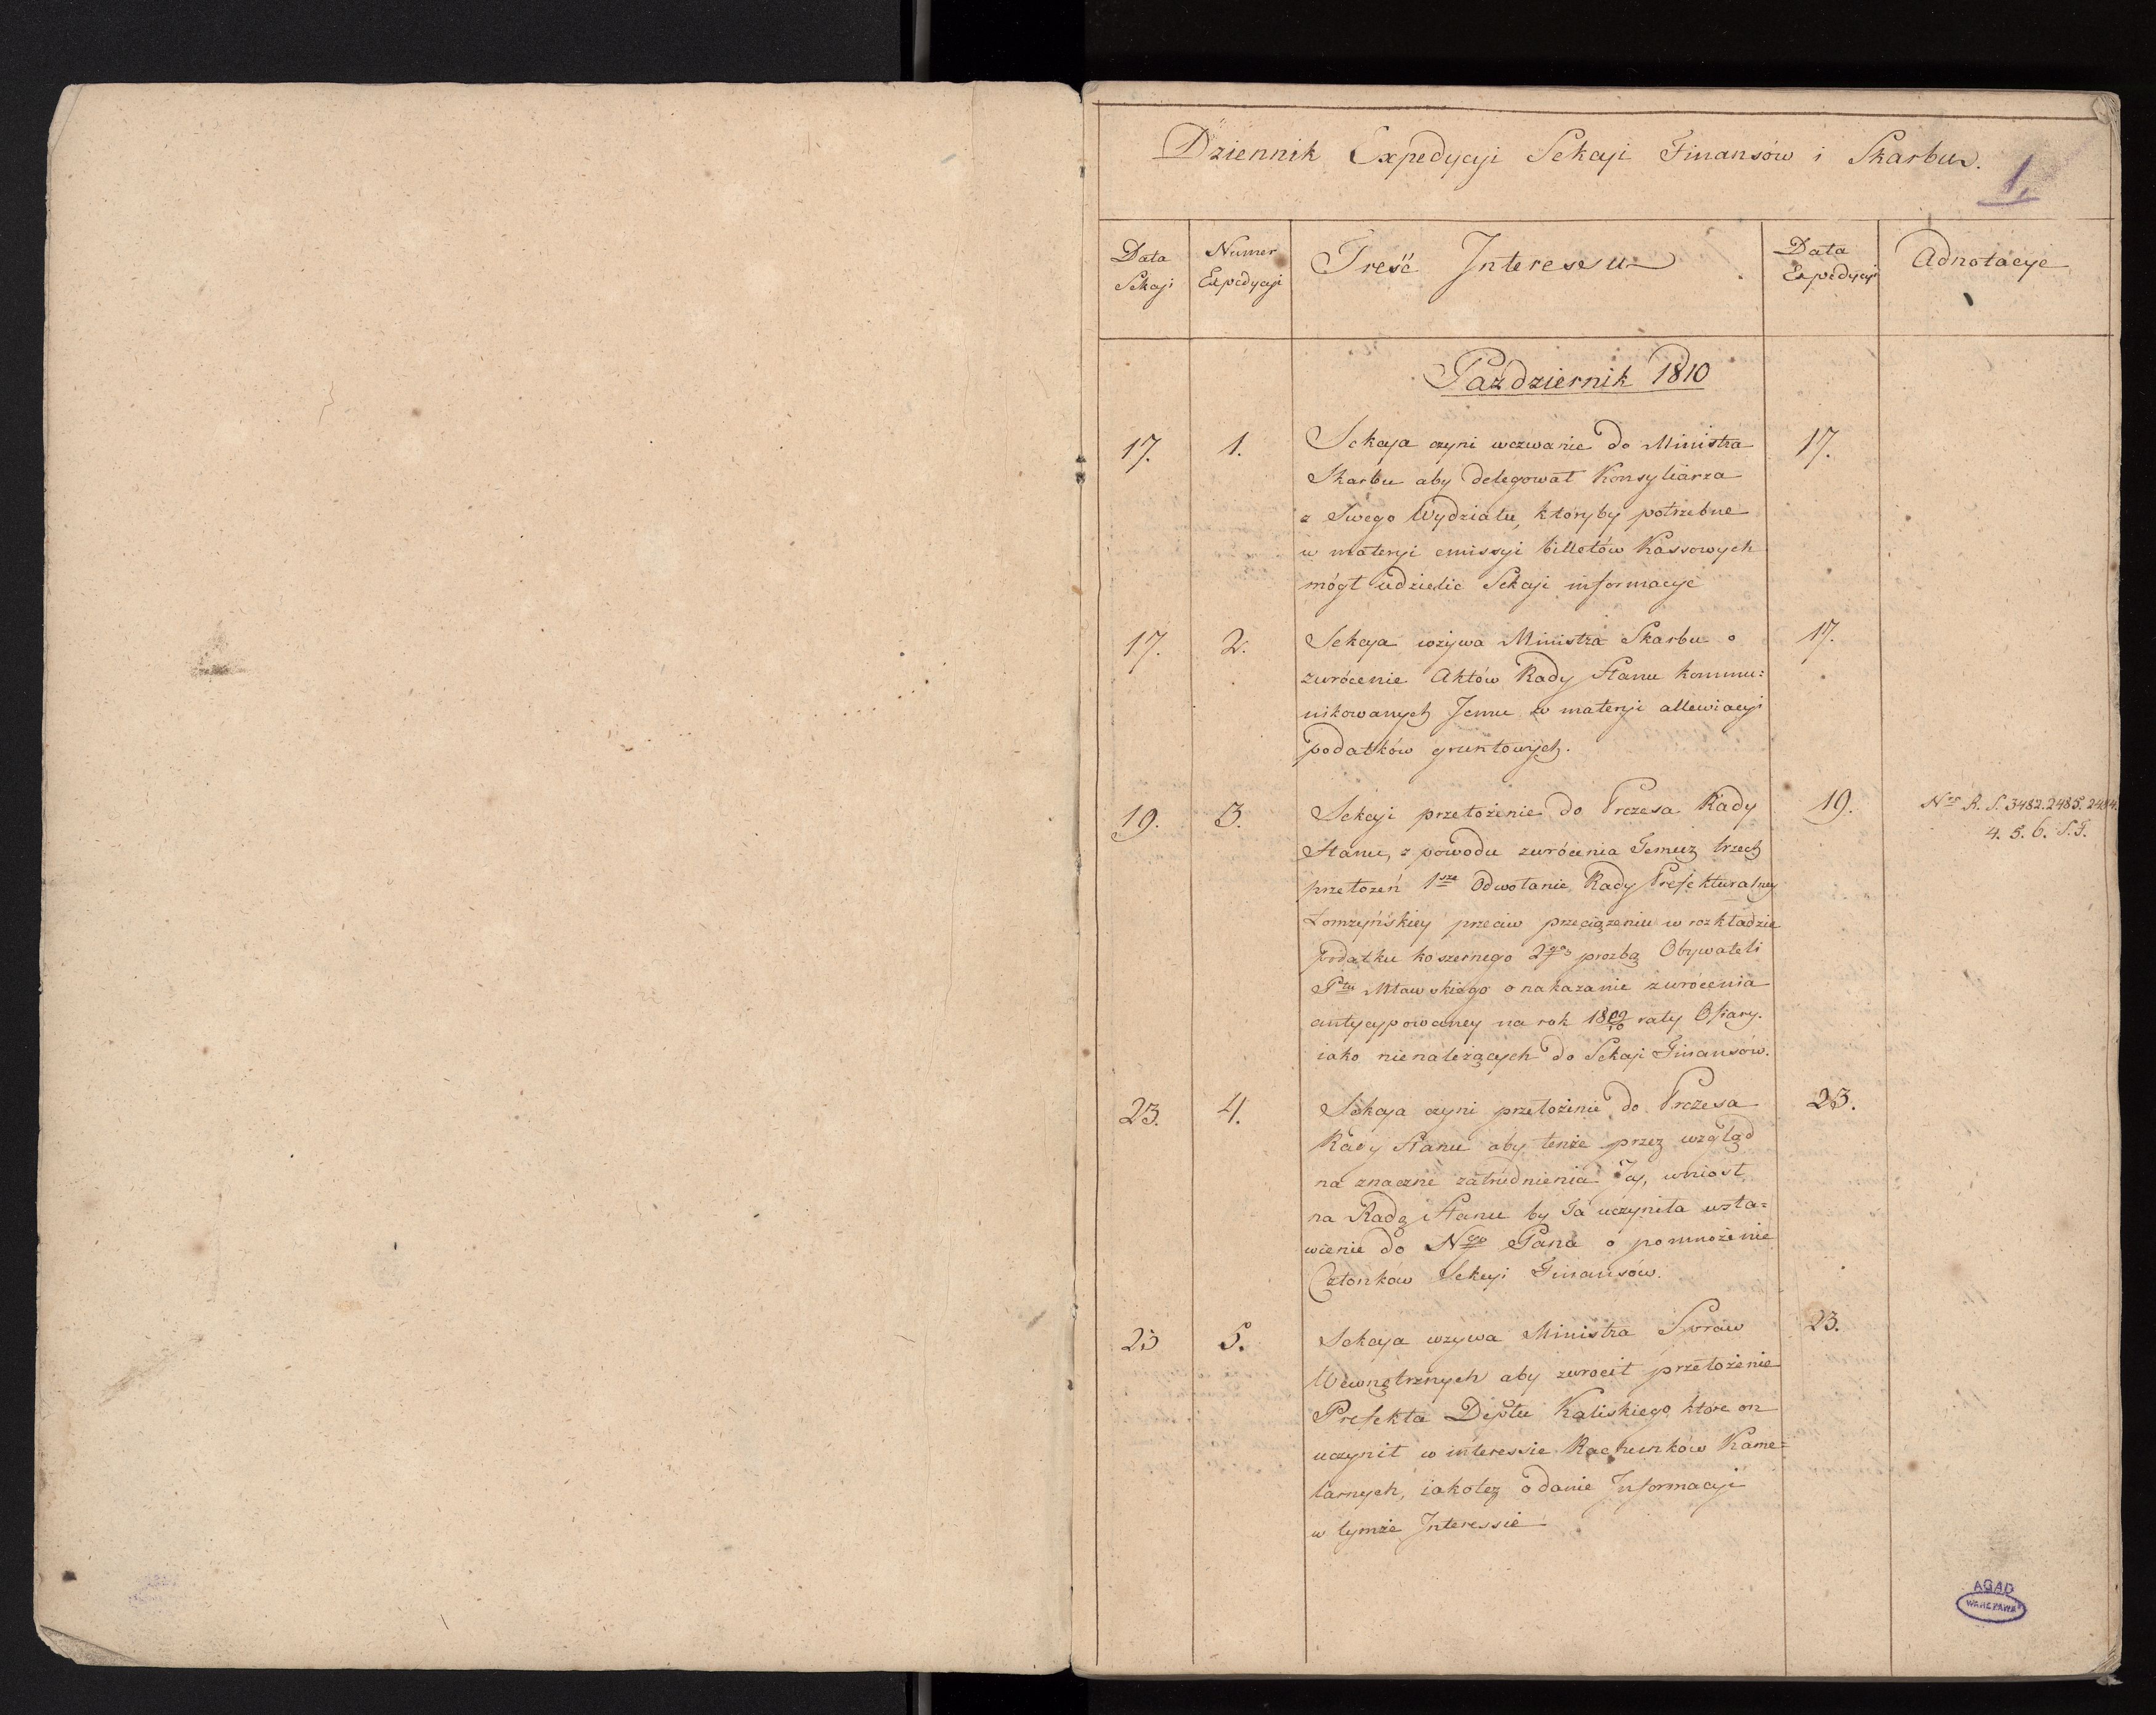 Dziennik Expedycyi Sekcyi Finansów i Skarbu.
1.
Data Sekcyi
Numer Expedycyi
Treść Interessu
Data Expedycyi
Adnotacye
Pazdziernik 1810
17. 1. Sekcya czyni wezwanie do Ministra 17.
Skarbu aby delegował Konsyliarza
z Swego Wydziału, któryby potrzebne
w materyi emissyi billetów Kassowych
mógł udzielic Sekcyi informacye
17. 2. Sekcya wzywa Ministra Skarbu o 17.
zwrócenie Aktów Rady Stanu kommu=
nikowanych Jemu w materyi allewiacyi
podatków gruntowych.
19. 3. Sekcyi przełożenie do Prezesa Rady 19. Nra R. S. 3482. 2485. 2484.
Stanu, z powodu zwrócenia Temuż trzech 4. 5. 6. S. F.
przełozeń 1sze Odwołanie Rady Prefekturalney
Łomzyńskiey przeciw przeciązeniu w rozkładzie
podatku koszernego 2go prozbą Obywateli
Ptu Mławskiego o nakazanie zwrócenia
antycypowaney na rok 1809/10 raty Ofiary.
iako nienależących do Sekcyi Finansów.
23. 4. Sekcya czyni przełożenie do Prezesa 23.
Rady Stanu aby tenże przez wzgląd
na znaczne zatrudnienia Jey, wniosł
na Radę Stanu by Ta uczyniła wsta=
wienie do Ngo Pana o pomnożenie
Członków Sekcyi Finansów.
23 5. Sekcya wzywa Ministra Spraw 23.
Wewnętrznych aby zwrocił przełożenie
Prefekta Deptu Kaliskiego, które on
uczynił w interessie Rachunków Kame=
larnych, iakotez o danie Informacyi
w tymże Interessie
AGAD
WARSZAWA